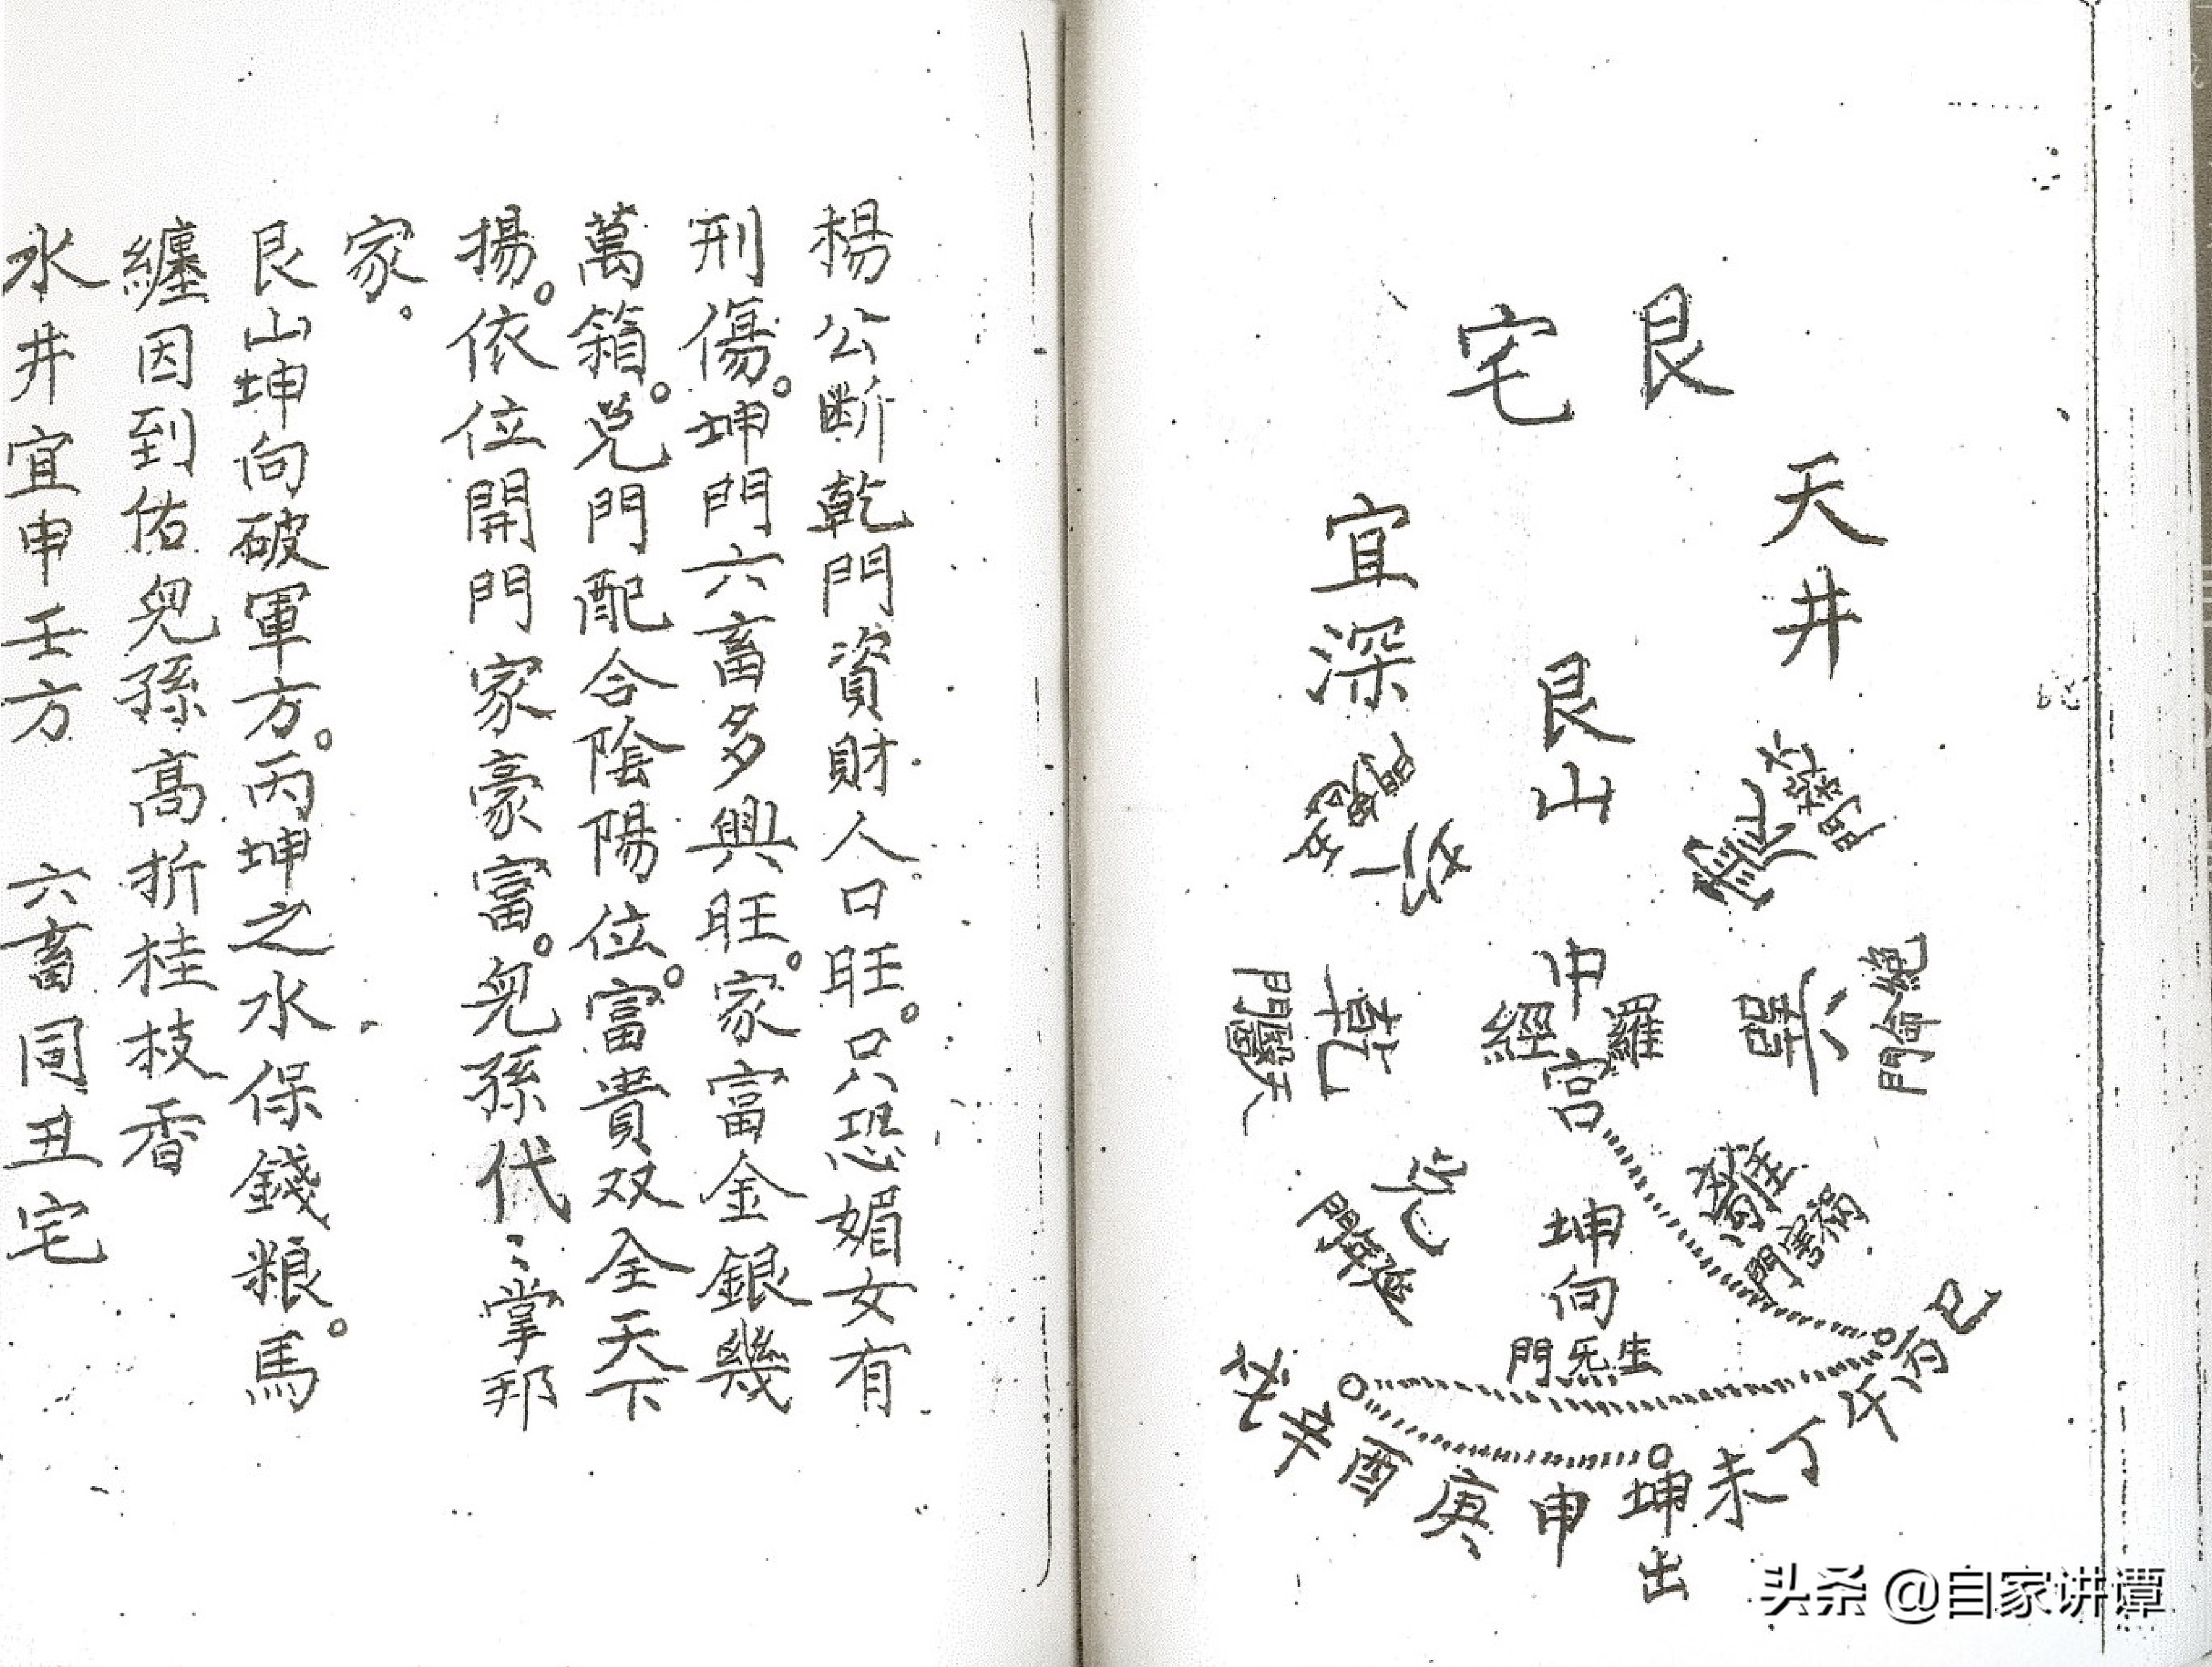 艮
宅
天井
宜深
艮山
五鬼門
坎
震
六煞門
中宮
羅
經
乾
天醫門
巽
絶命門
兌
延年門
離
禍害門
坤向
生炁門
戌辛酉庚申坤未丁午丙巳
出
头条 @自家讲谭
楊公断乾門資財人口旺。只恐媚女有
刑傷。坤門六畜多興旺。家富金銀幾
萬箱。兌門配合陰陽位。富貴双全天下
揚。依位開門家豪富。兒孫代〻掌邦
家。
艮山坤向破軍方。丙坤之水保錢粮。馬
纏因到佑兒孫高折桂枝香
水井宜申壬方 六畜同丑宅